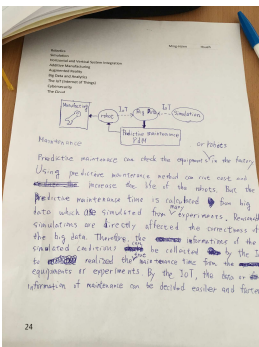 Robotics
Simulation
Horizontal and Vertical System Integration
Additive Manufacturing
Augmented Reality
Big Data and Analytics
The IoT (Internet of Things)
Cybersecurity
The Cloud
Manufacturing
robot
IoT
Big Data
IoT
Simulation
Predictive maintenance
Maintenance
or robots
Predictive maintenance can check the equipments in the factory.
Using predictive maintenance method can rise cost and
increase the life of the robots. But the
predictive maintenance time is calculated from big
data which are simulated from many experiments.
simulations are directly affected the correctness of
the big data. Therefore, the informations of the
simulated conditions be collected by the Io
to realized the maintenance time from the
equipments or experiments. By the IoT, the data or
information of maintenance can be decided easier and faster
24